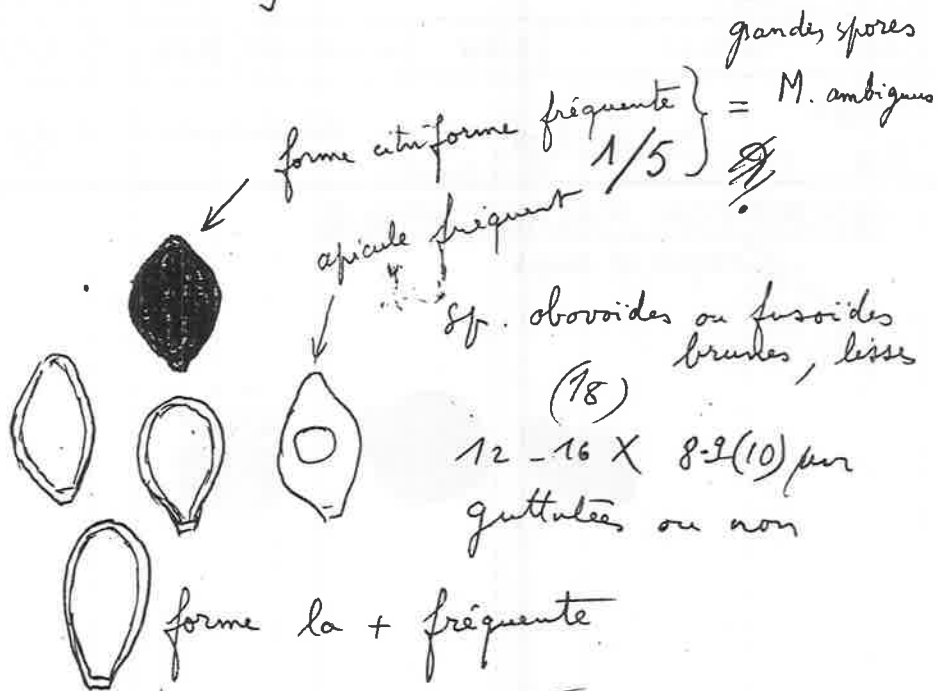 grandes spores
forme citriforme fréquente } = M. ambiguus
1/5
apicule fréquent
Sp. obovoïdes ou fusoïdes
brunes, lisses
(18)
12-16 X 8-9(10) µm
guttulées ou non
forme la + fréquente